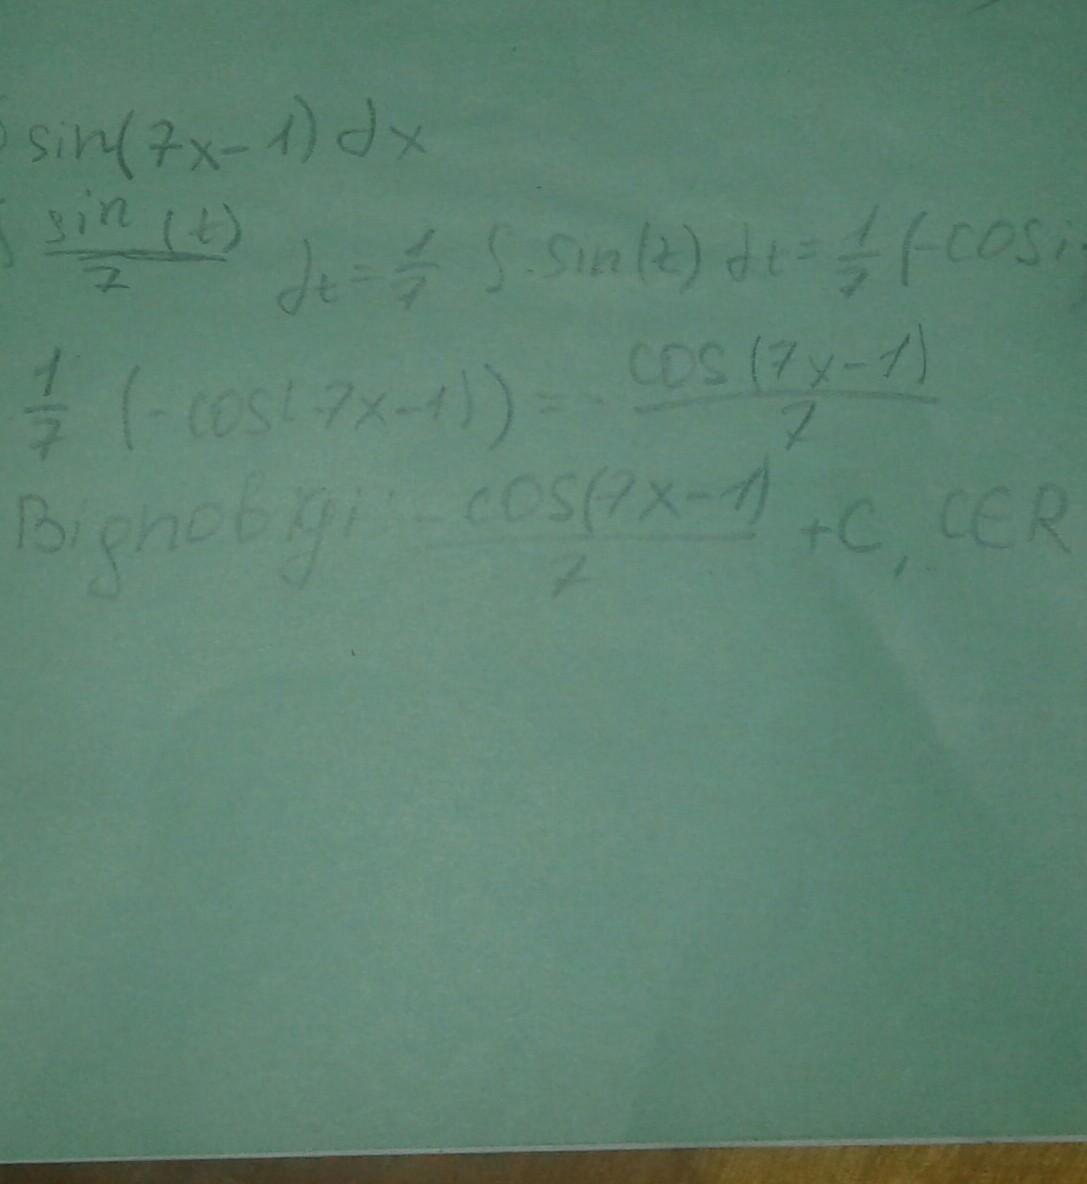 ∫ sin(7x-1) dx
∫ sin(t)/7 dt = 1/7 ∫ sin(t) dt = 1/7 (-cos
1/7 (-cos(7x-1)) = - cos(7x-1)/7
Відповіді: - cos(7x-1)/7 + C, C∈R